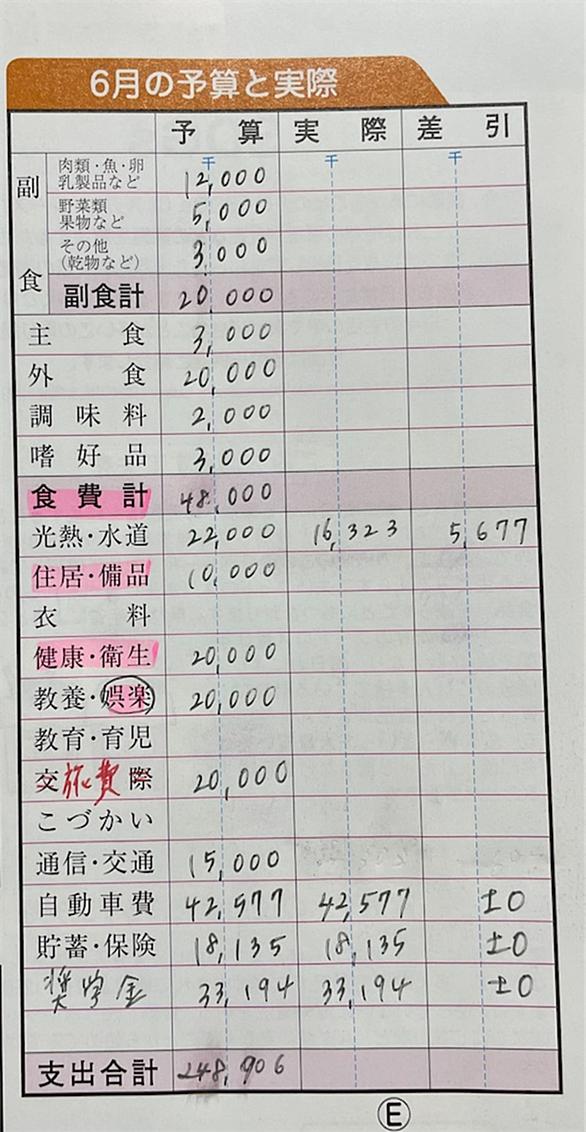 6月の予算と実際
予算 実際 差引
千 千 千
副食
肉類・魚・卵
乳製品など 12,000
野菜類
果物など 5,000
その他
(乾物など) 3,000
副食計 20,000
主食 3,000
外食 20,000
調味料 2,000
嗜好品 3,000
食費計 48,000
光熱・水道 22,000 16,323 5,677
住居・備品 10,000
衣料
健康・衛生 20,000
教養・娯楽 20,000
教育・育児
交際 旅費 20,000
こづかい
通信・交通 15,000
自動車費 42,577 42,577 ±0
貯蓄・保険 18,135 18,135 ±0
奨学金 33,194 33,194 ±0
支出合計 248,906
E